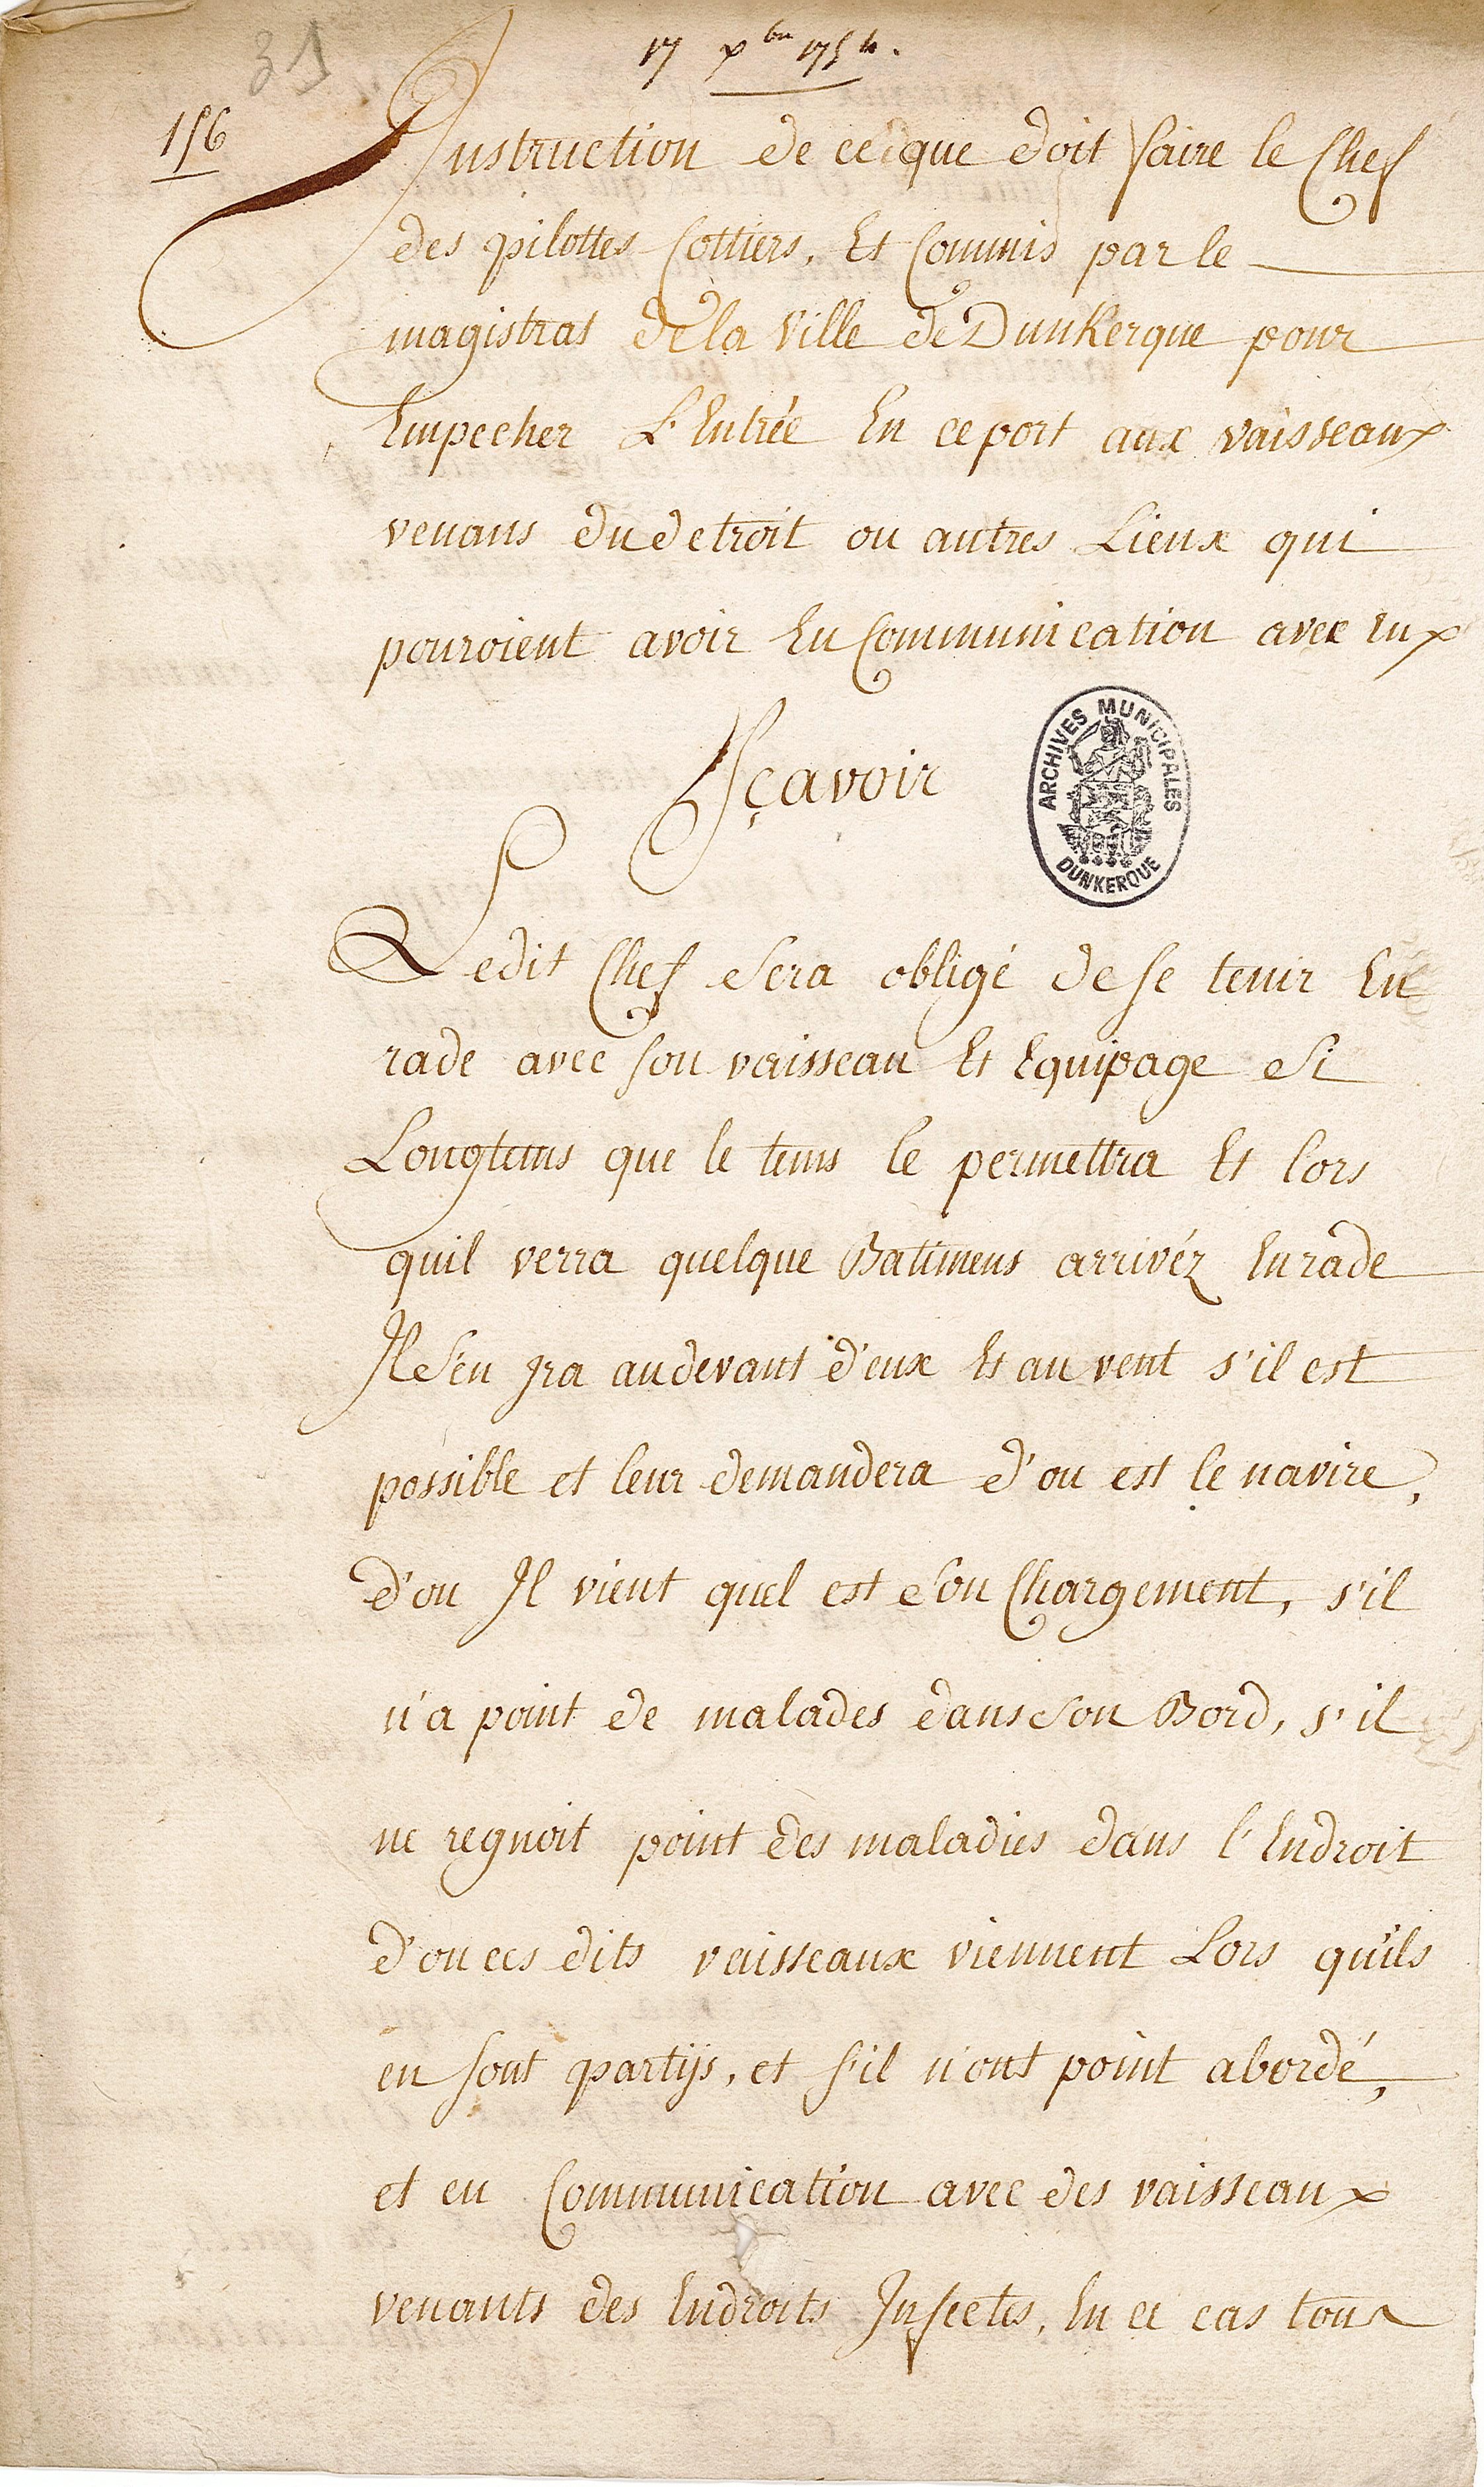 31
17 xbre 1754.
156
Instruction de ce que doit faire le Chef
des pilottes Cottiers, Et Commis par le
magistrat de la Ville de Dunkerque pour
Empecher L'Entrée En ce port aux vaisseaux
venans du detroit ou autres Lieux qui
pouroient avoir Eu Communication avec Eux
Sçavoir
ARCHIVES MUNICIPALES
DUNKERQUE
Ledit Chef Sera obligé de se tenir En
rade avec son vaisseau Et Equipage Si
Longtems que le tems le permettra Et lors
quil verra quelque Batimens arrivéz En rade
Il S'en Jra au devant d'eux Et au vent s'il est
possible et leur demandera d'ou est le navire,
d'ou Il vient quel est Son Chargement, s'il
n'a point de malades dans Son Bord, s'il
ne regnoit point des maladies dans l'Endroit
d'ou ces dits vaisseaux viennent Lors qu'ils
en sont partijs, et s'il n'ont point abordé,
et eu Communication avec des vaisseaux
venants des Endroits Infectes, En ce cas tous